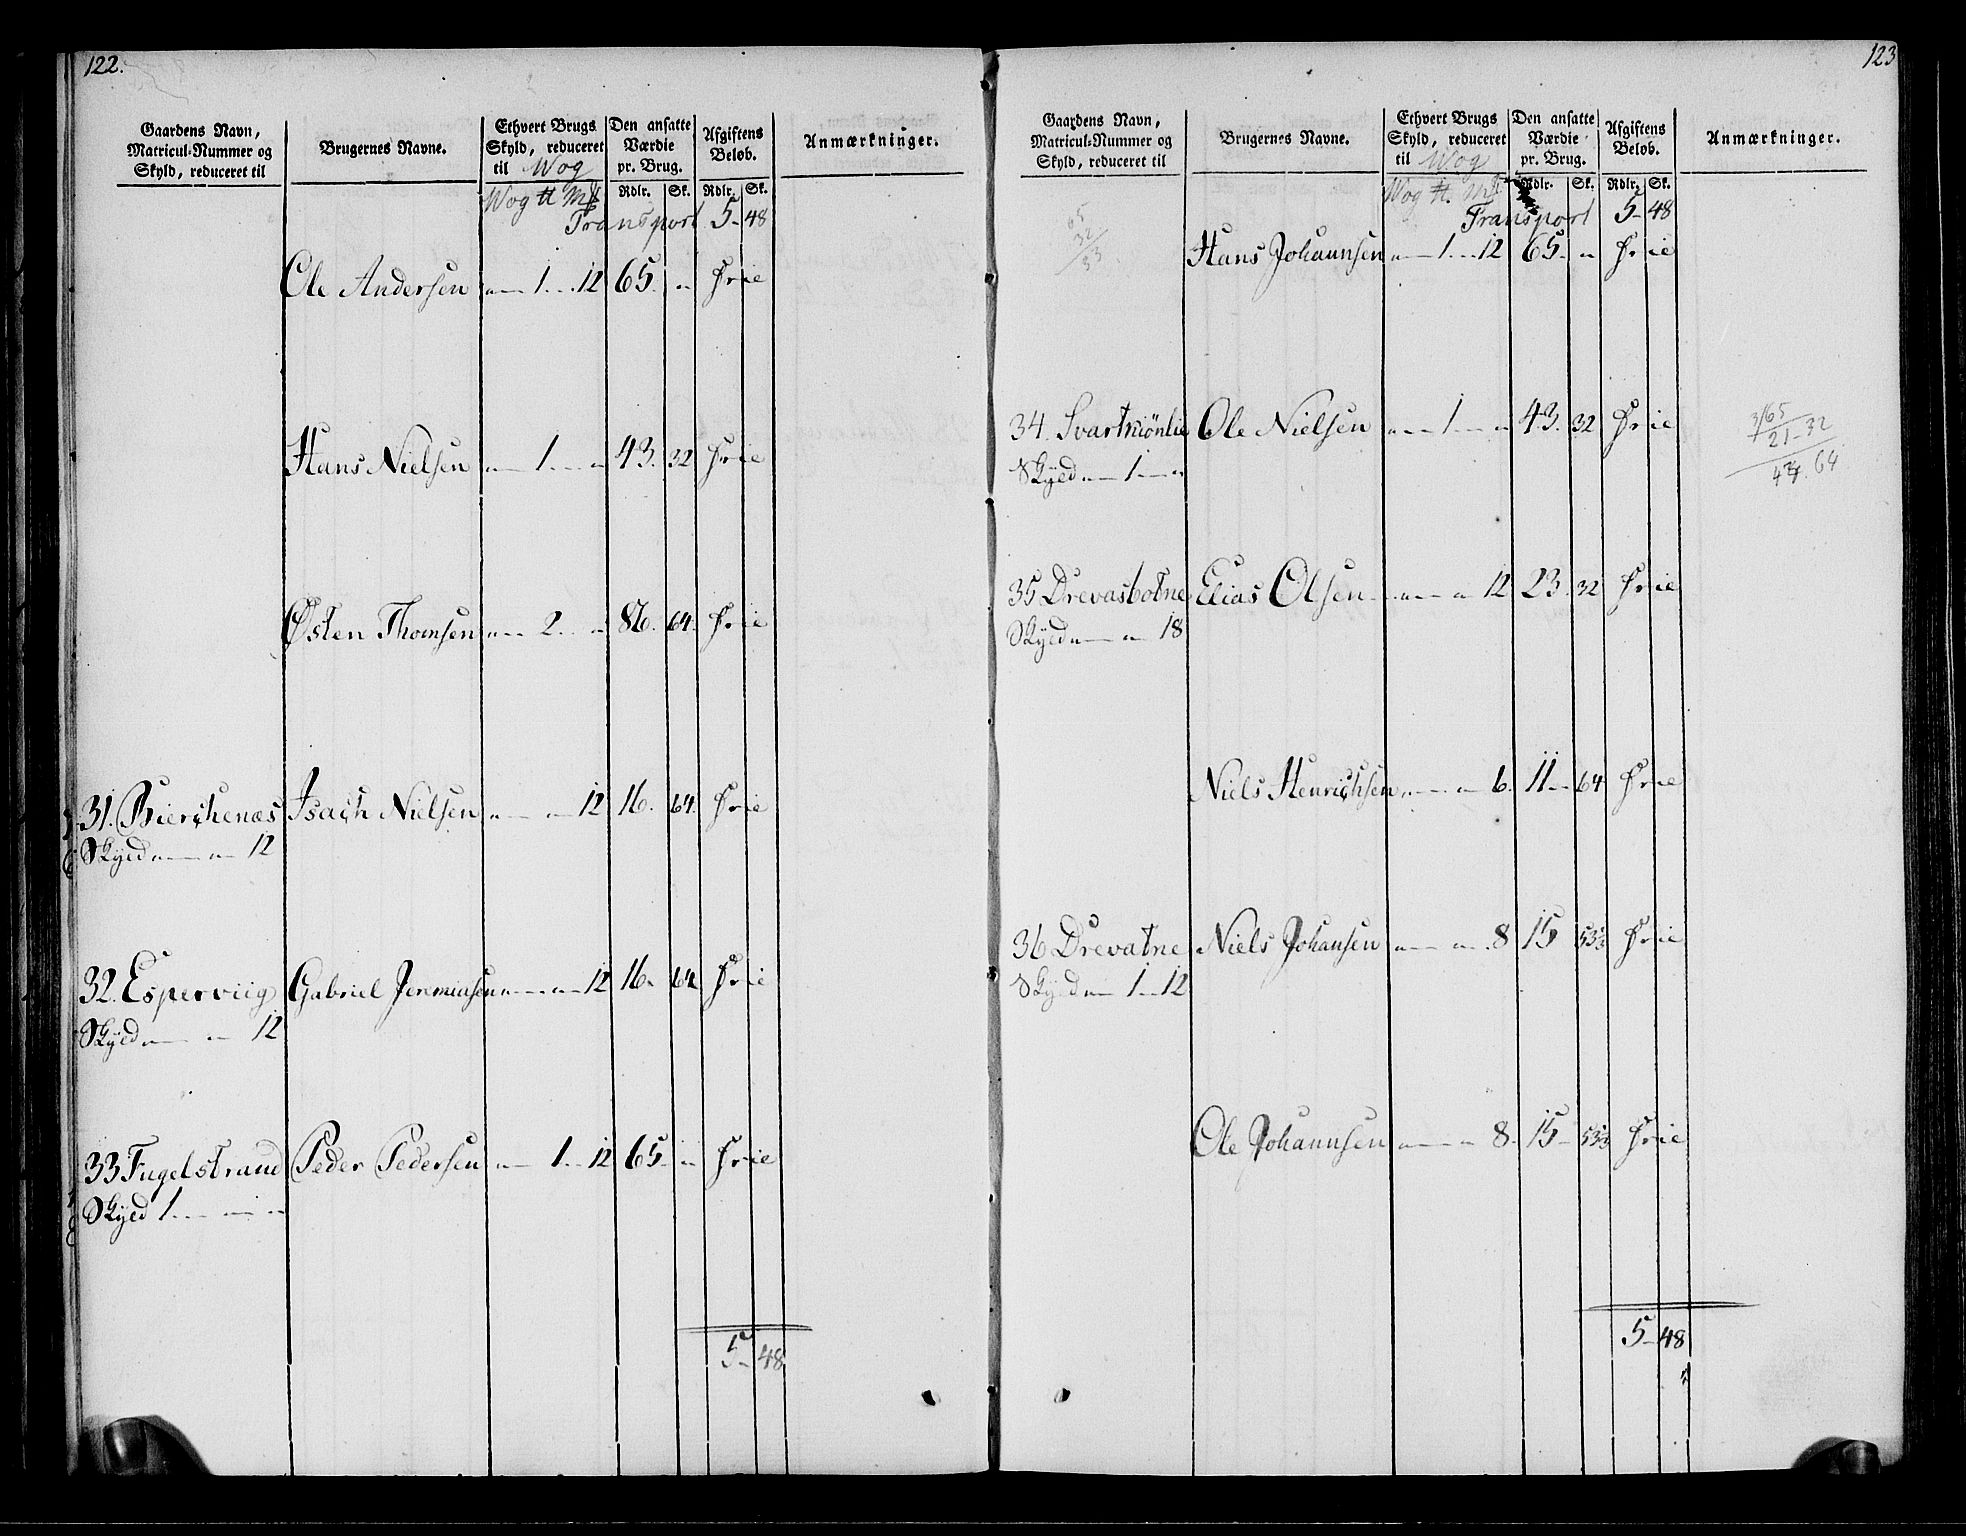 122.
Gaardens Navn, Matricul-Nummer og Skyld, reduceret til
Brugernes Navne.
Ethvert Brugs Skyld, reduceret til Wog
Den ansatte Værdie pr. Brug.
Afgiftens Beløb.
Anmærkninger.
Wog ℔ Mk Rdlr. Sk. Rdlr. Sk.
Transport 5 - 48
Ole Andersen " 1 . . 12 65. " Frie
Hans Nielsen " 1 . . " 43. 32 Frie
Østen Thomsen " 2 . . " 86. 64. Frie
31. Bierchenæs Isach Nielsen " " 12 16. 64. Frie
Skyld " " 12
32. Esperviig Gabriel Jeremiasen " " 12 16. 64 Frie
Skyld " " 12
33 Fugelstrand Peder Pedersen " 1 . . 12 65. " Frie
Skyld 1 " "
5 - 48
123
Gaardens Navn, Matricul-Nummer og Skyld, reduceret til
Brugernes Navne.
Ethvert Brugs Skyld, reduceret til Wog
Den ansatte Værdie pr. Brug.
Afgiftens Beløb.
Anmærkninger.
Wog ℔. Mk Rdlr. Sk. Rdlr. Sk.
Transport 5 - 48
65
32
33
Hans Johannsen " 1 . . 12 65. " Frie
34. Svartmönlie Ole Nielsen " 1 " 43. 32 Frie
Skyld " 1 "
3/65
21 - 32
43. 64
35 Drevasbotne Elias Olsen " " 12 23. 32 Frie
Skyld " " 18
Niels Henrichsen " " 6. 11 - 64 Frie
36 Drevatne Niels Johansen " " 8 15 53⅓ Frie
Skyld " 1 - 12
Ole Johannsen " " 8. 15 - 53⅓ Frie
5 - 48